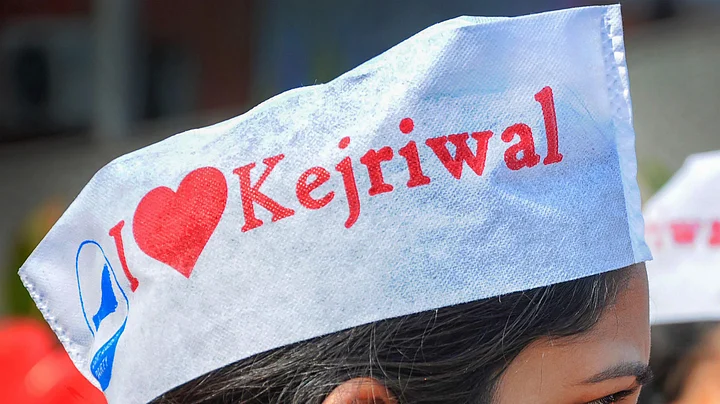 I ❤ Kejriwal